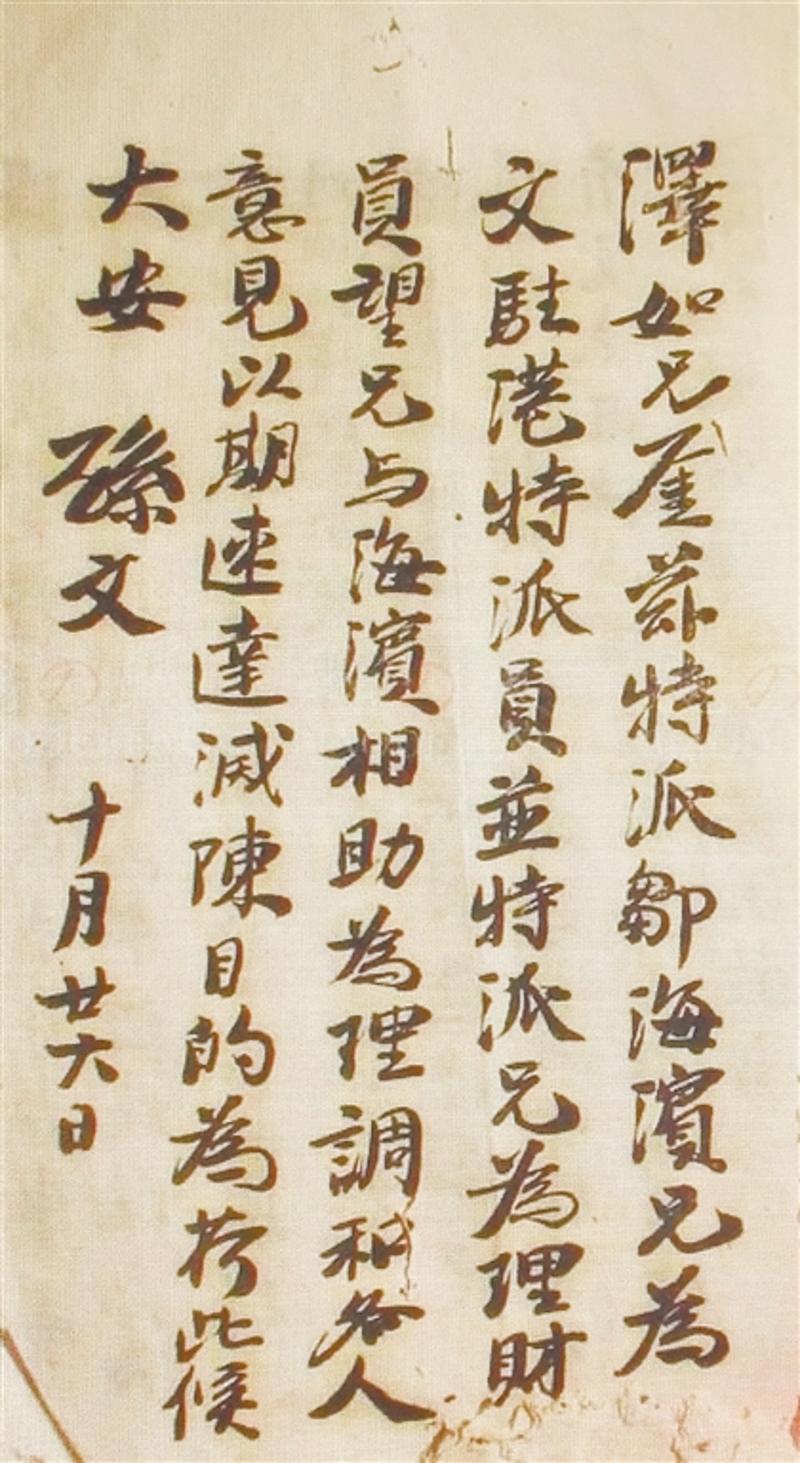 澤如兄鉴茲特派鄒海濱兄為
文駐港特派員並特派兄為理財
員望兄与海濱相助為理調和各人
意見以期速達滅陳目的為荷此候
大安 孫文 十月廿六日